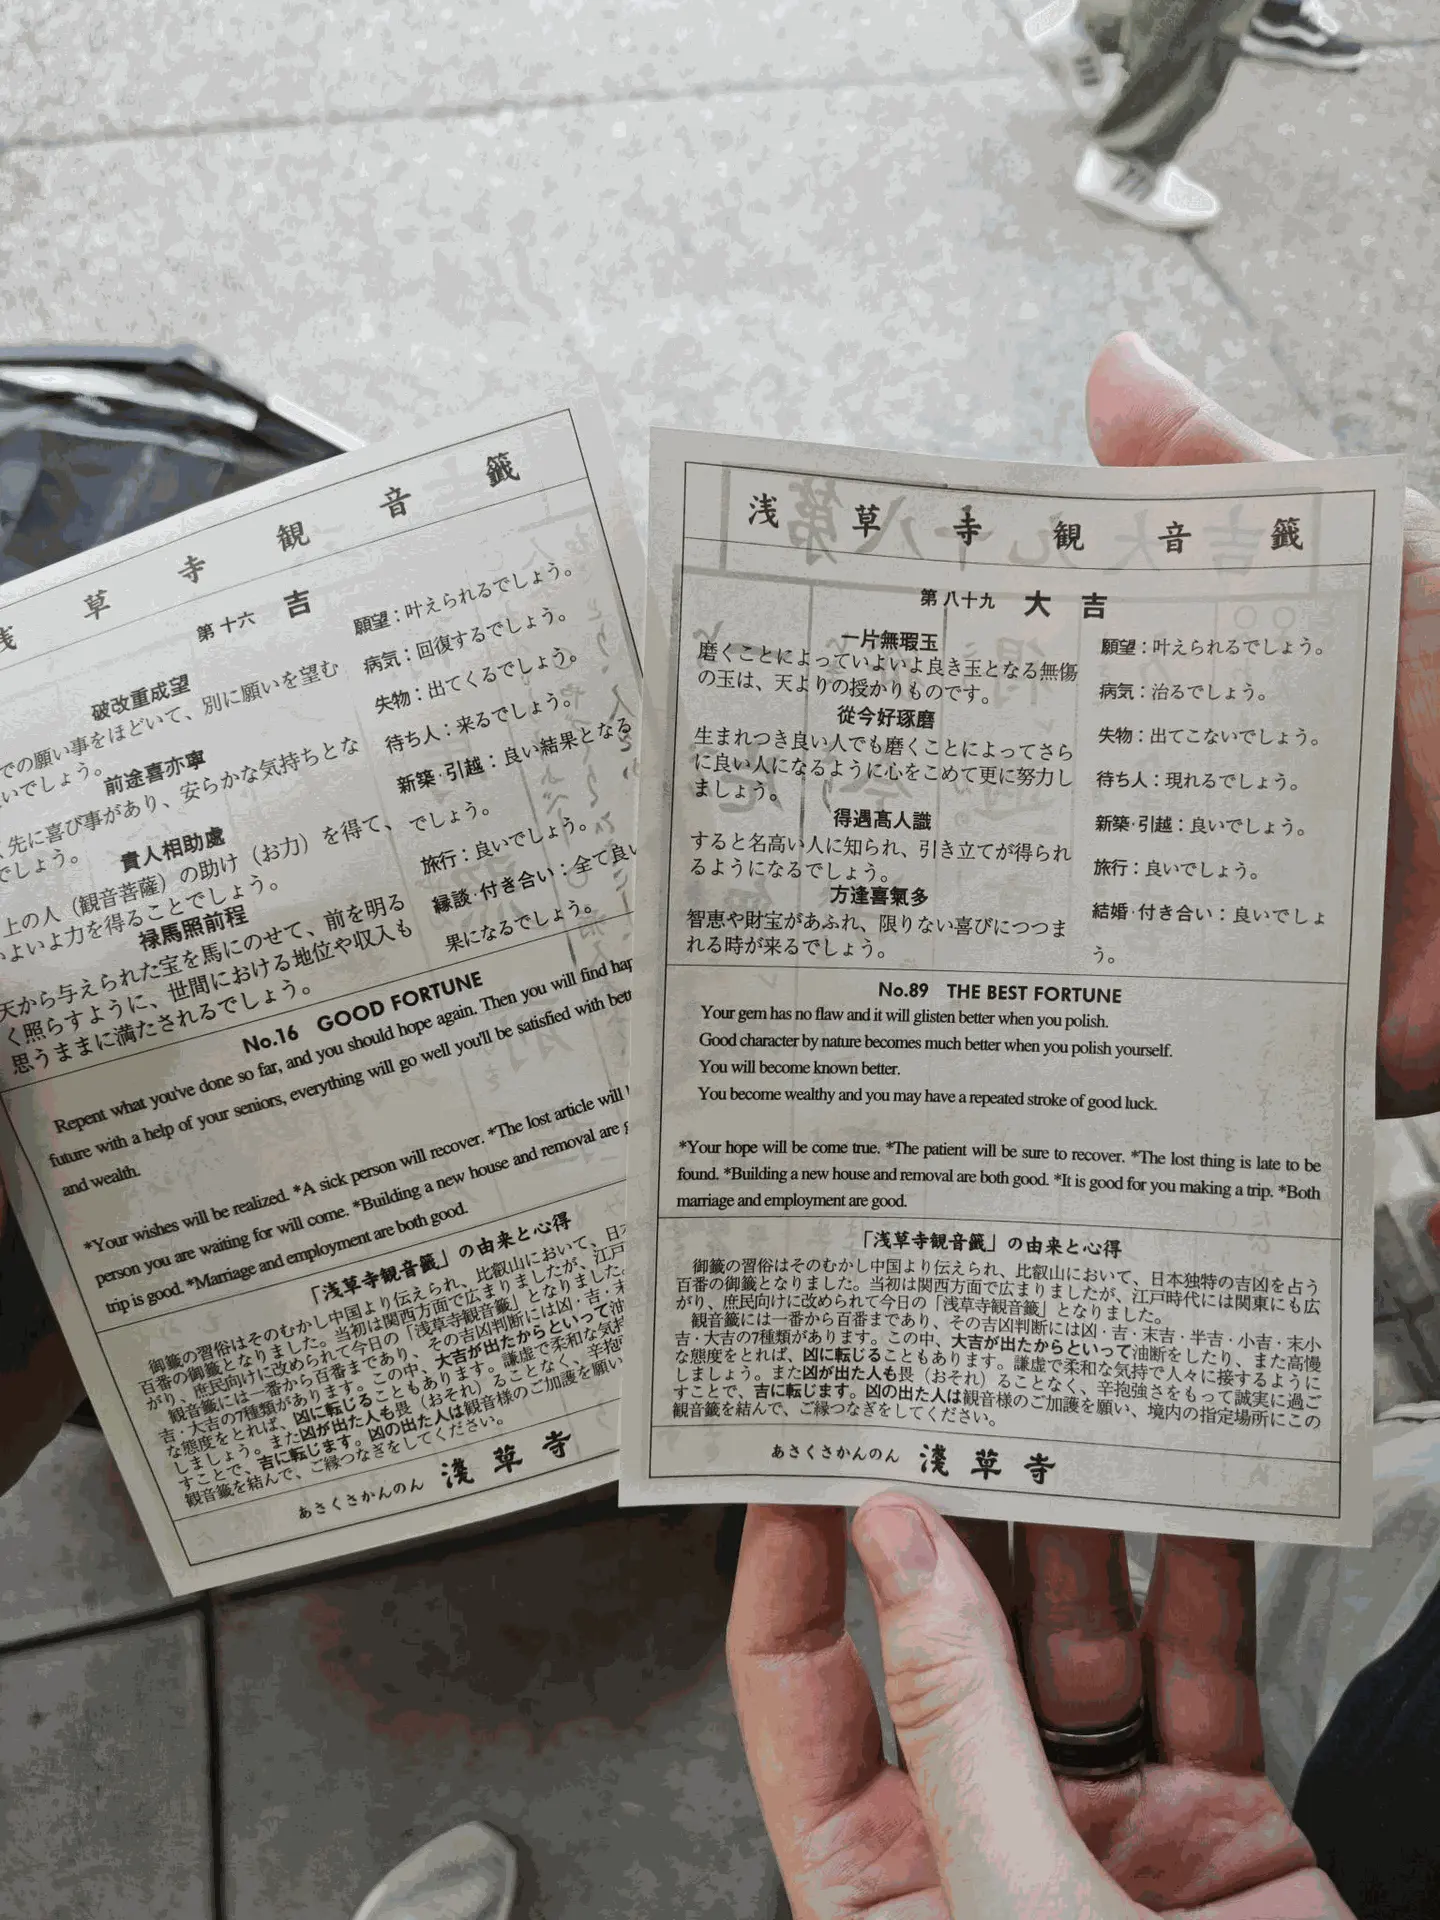 浅草寺観音籤
第十六 吉
破改重成望
での願い事をほどいて、別に願いを望む
いでしょう。
前途喜亦寧
、先に喜び事があり、安らかな気持ちとな
でしょう。
貴人相助處
上の人（観音菩薩）の助け（お力）を得て、
いよいよ力を得ることでしょう。
禄馬照前程
天から与えられた宝を馬にのせて、前を明る
く照らすように、世間における地位や収入も
思うままに満たされるでしょう。
願望：叶えられるでしょう。
病気：回復するでしょう。
失物：出てくるでしょう。
待ち人：来るでしょう。
新築·引越：良い結果となる
でしょう。
旅行：良いでしょう。
縁談·付き合い：全て良い
果になるでしょう。
No.16 GOOD FORTUNE
Repent what you've done so far, and you should hope again. Then you will find
future with a help of your seniors, everything will go well you'll be satisfied with
and wealth.
*Your wishes will be realized. *A sick person will recover. *The lost article will
person you are waiting for will come. *Building a new house and removal are
trip is good. *Marriage and employment are both good.
「浅草寺観音籤」の由来と心得
御籤の習俗はそのむかし中国より伝えられ、比叡山において、日
百番の御籤となりました。当初は関西方面で広まりましたが、江戸
がり、庶民向けに改められて今日の「浅草寺観音籤」となりました。
観音籤には一番から百番まであり、その吉凶判断には凶・吉・末
吉・大吉の7種類があります。この中、大吉が出たからといって油
な態度をとれば、凶に転じることもあります。謙虚で柔和な気持
しましょう。また凶が出た人も畏（おそれ）ることなく、辛抱
すことで、吉に転じます。凶の出た人は観音様のご加護を願い
観音籤を結んで、ご縁つなぎをしてください。
あさくさかんのん 淺草寺
浅草寺観音籤
第八十九 大吉
一片無瑕玉
磨くことによっていよいよ良き玉となる無傷
の玉は、天よりの授かりものです。
從今好琢磨
生まれつき良い人でも磨くことによってさら
に良い人になるように心をこめて更に努力し
ましょう。
得遇髙人識
すると名高い人に知られ、引き立てが得られ
るようになるでしょう。
方逢喜氣多
智恵や財宝があふれ、限りない喜びにつつま
れる時が来るでしょう。
願望：叶えられるでしょう。
病気：治るでしょう。
失物：出てこないでしょう。
待ち人：現れるでしょう。
新築·引越：良いでしょう。
旅行：良いでしょう。
結婚·付き合い：良いでしょ
う。
No.89 THE BEST FORTUNE
Your gem has no flaw and it will glisten better when you polish.
Good character by nature becomes much better when you polish yourself.
You will become known better.
You become wealthy and you may have a repeated stroke of good luck.
*Your hope will be come true. *The patient will be sure to recover. *The lost thing is late to be
found. *Building a new house and removal are both good. *It is good for you making a trip. *Both
marriage and employment are good.
「浅草寺観音籤」の由来と心得
御籤の習俗はそのむかし中国より伝えられ、比叡山において、日本独特の吉凶を占う
百番の御籤となりました。当初は関西方面で広まりましたが、江戸時代には関東にも広
がり、庶民向けに改められて今日の「浅草寺観音籤」となりました。
観音籤には一番から百番まであり、その吉凶判断には凶・吉・末吉・半吉・小吉・末小
吉・大吉の7種類があります。この中、大吉が出たからといって油断をしたり、また高慢
な態度をとれば、凶に転じることもあります。謙虚で柔和な気持で人々に接するように
しましょう。また凶が出た人も畏（おそれ）ることなく、辛抱強さをもって誠実に過ご
すことで、吉に転じます。凶の出た人は観音様のご加護を願い、境内の指定場所にこの
観音籤を結んで、ご縁つなぎをしてください。
あさくさかんのん 淺草寺